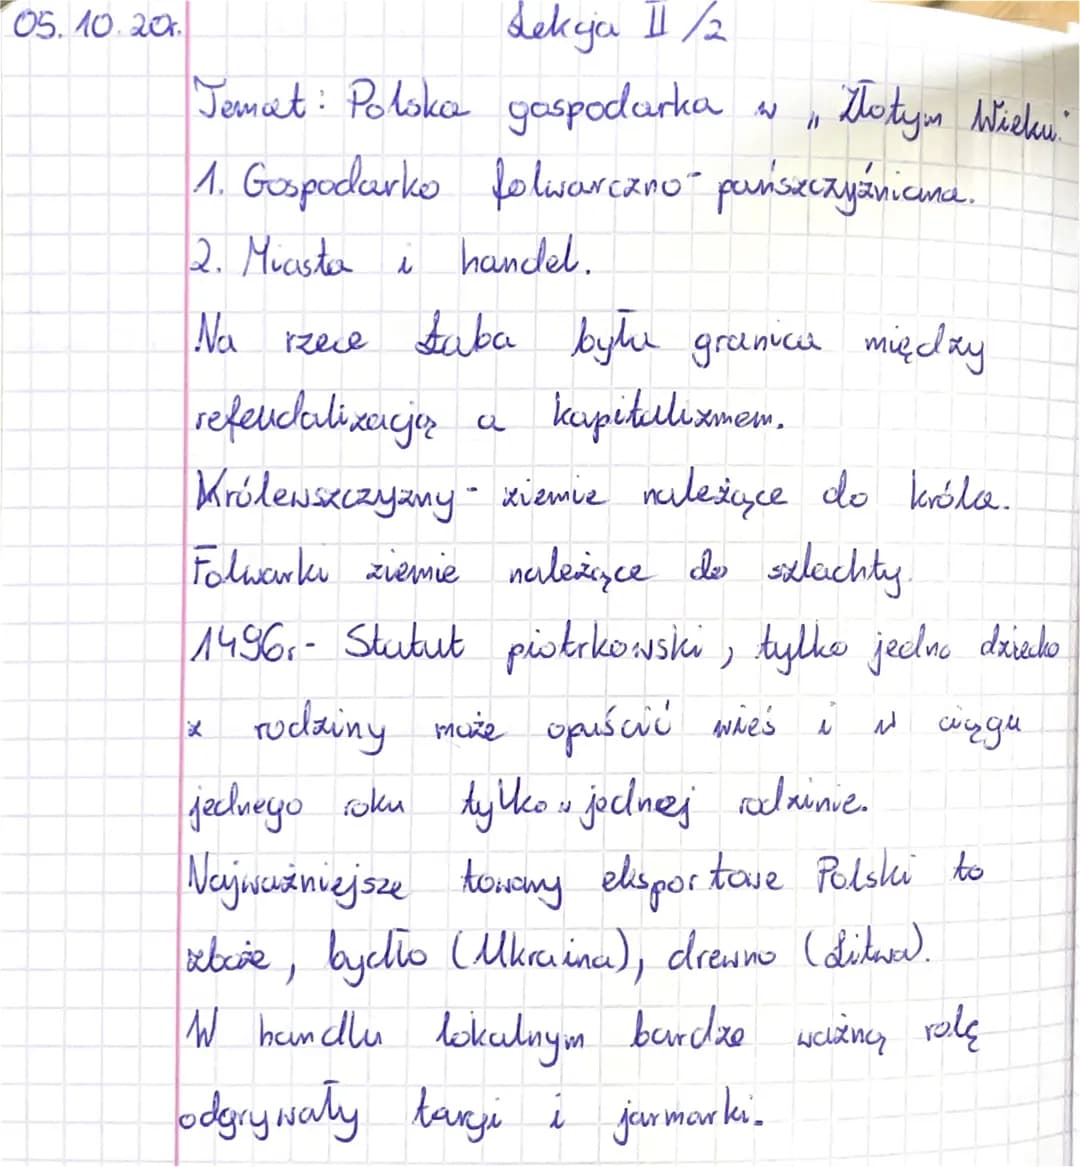 05.10.20r. Lekcja II/2
Temat: Polska gospodarka w „Złotym Wieku"
1. Gospodarko folwarczno-pańszczyźniana.
2. Miasta i handel.
Na rzece Łaba była granica między
refeudalizacją a kapitalizmem.
Królewszczyzny - ziemie należące do króla.
Folwarki ziemie należące do szlachty.
1496r- Statut piotrkowski, tylko jedno dziecko
z rodziny może opuścić wieś i w ciągu
jednego roku tylko w jednej rodzinie.
Najważniejsze towary eksportowe Polski to
zboże, bydło (Ukraina), drewno (Litwa).
W handlu lokalnym bardzo ważną rolę
odgrywały targi i jarmarki.